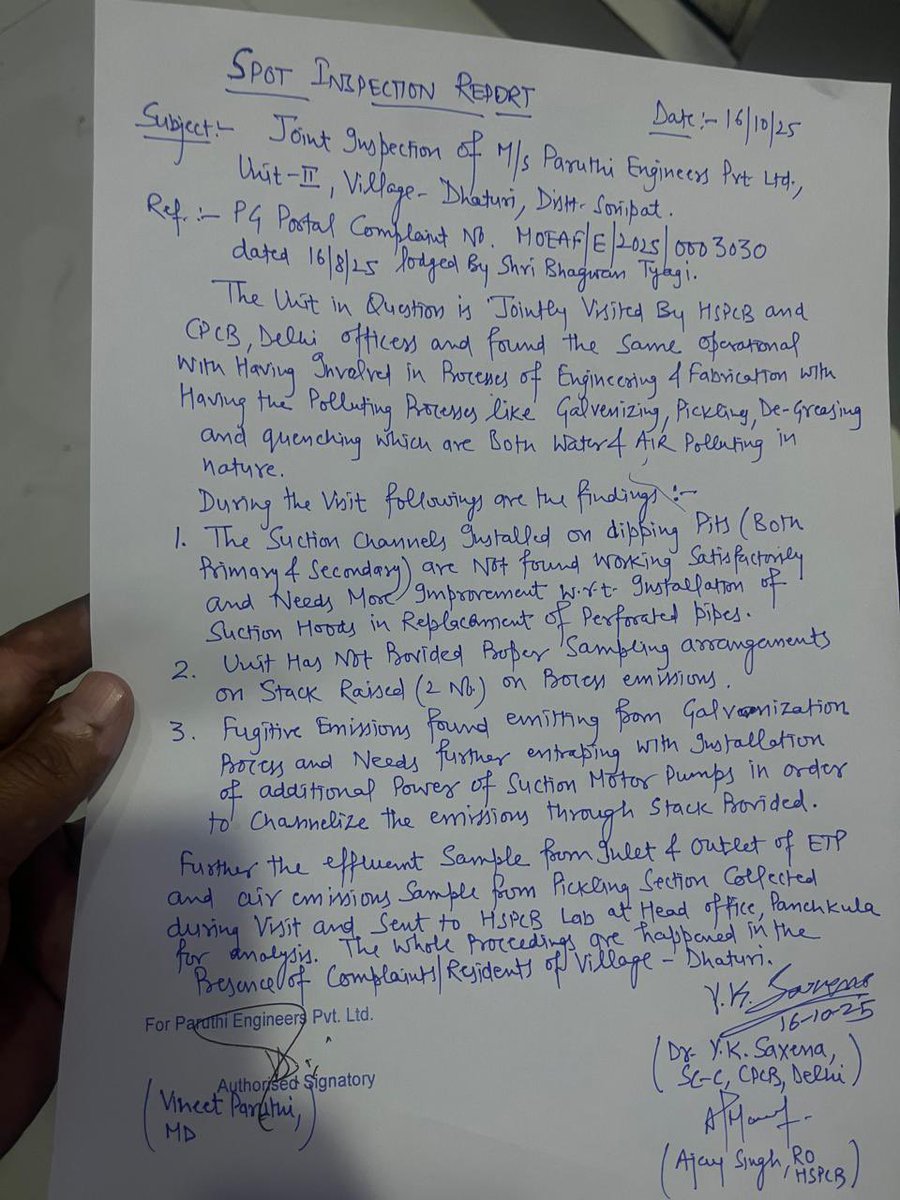 SPOT INSPECTION REPORT
Date:- 16/10/25
Subject:- Joint Inspection of M/s Paruthi Engineers Pvt Ltd.,
Unit-II, Village- Dhaturi, Distt- Sonipat.
Ref.:- PG Portal Complaint No. MOEAF/E/2025/0003030
dated 16/8/25 lodged By Shri Bhagwan Tyagi.
The Unit in Question is Jointly Visited By HSPCB and
CPCB, Delhi officers and found the same operational
with Having Involved in Processes of Engineering & Fabrication with
Having the Polluting Processes like Galvenizing, Pickling, De-Greasing
and quenching which are Both Water & AIR Polluting in
nature.
During the Visit followings are the findings:-
1. The Suction Channels Installed on dipping Pits (Both
Primary & Secondary) are Not found working Satisfactorily
and Needs More Improvement w.r.t. Installation of
Suction Hoods in Replacement of Perforated pipes.
2. Unit Has Not Provided Proper Sampling arrangements
on Stack Raised (2 No.) on Process emissions.
3. Fugitive Emissions found emitting from Galvanization
Process and Needs further entraping with Installation
of additional Power of Suction Motor Pumps in order
to Channelize the emissions through Stack Provided.
Further the effluent Sample from Inlet & Outlet of ETP
and air emissions Sample from Pickling Section Collected
during Visit and Sent to HSPCB Lab at Head office, Panchkula
for analysis. The whole Proceedings are happened in the
Presence of Complaints/Residents of Village - Dhaturi.
For Paruthi Engineers Pvt. Ltd.
Authorised Signatory
(Vineet Paruthi,
MD)
Y.K. Saxena
16-10-25
(Dr. Y.K. Saxena,
SC-C, CPCB, Delhi)
(Ajay Singh, RO
HSPCB)